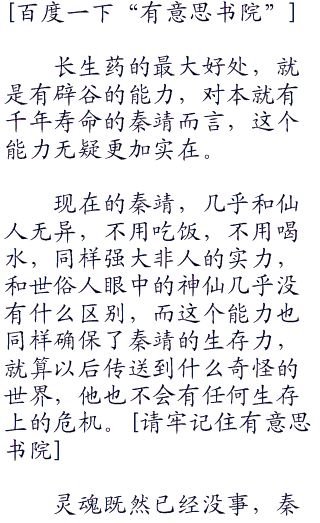 [百度一下“有意思书院”]
长生药的最大好处，就
是有辟谷的能力，对本就有
千年寿命的秦靖而言，这个
能力无疑更加实在。
现在的秦靖，几乎和仙
人无异，不用吃饭，不用喝
水，同样强大非人的实力，
和世俗人眼中的神仙几乎没
有什么区别，而这个能力也
同样确保了秦靖的生存力，
就算以后传送到什么奇怪的
世界，他也不会有任何生存
上的危机。[请牢记住有意思
书院]
灵魂既然已经没事，秦